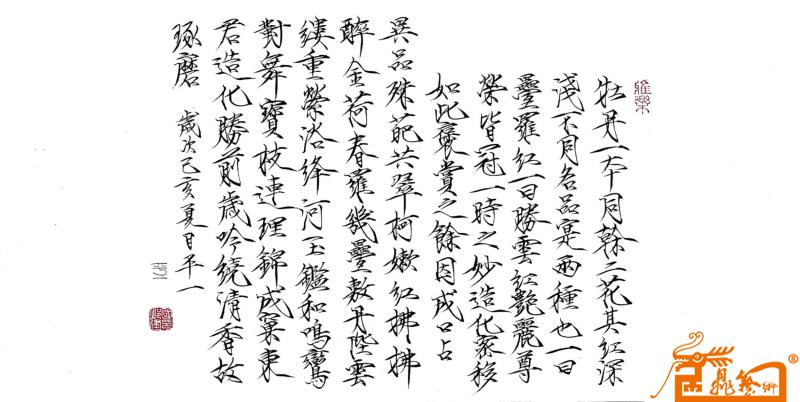 牡丹一本同幹二花其紅深
淺不同名品寔兩種也一曰
疊羅紅一曰勝雲紅艷麗尊
榮皆冠一時之妙造化密移
如此褒賞之餘因成口占
異品殊葩共翠柯嫩紅拂拂
醉金荷春羅幾疊敷丹陛雲
縷重縈浴絳河玉鑑和鳴鸞
對舞寶枝連理錦成窠東
君造化勝前歲吟繞清香故
琢磨 歲次己亥夏日平一
雅樂